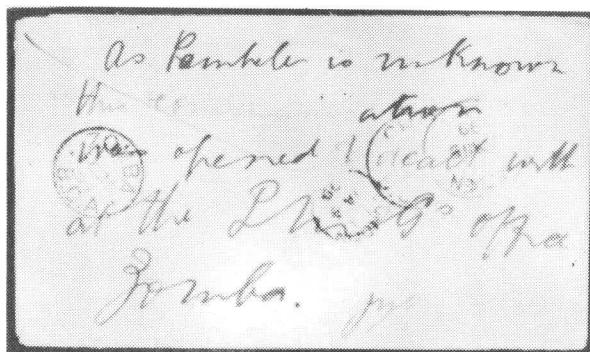 As Pembele is unknown
this
was opened & dealt with
at the P.M.G's office
Zomba.